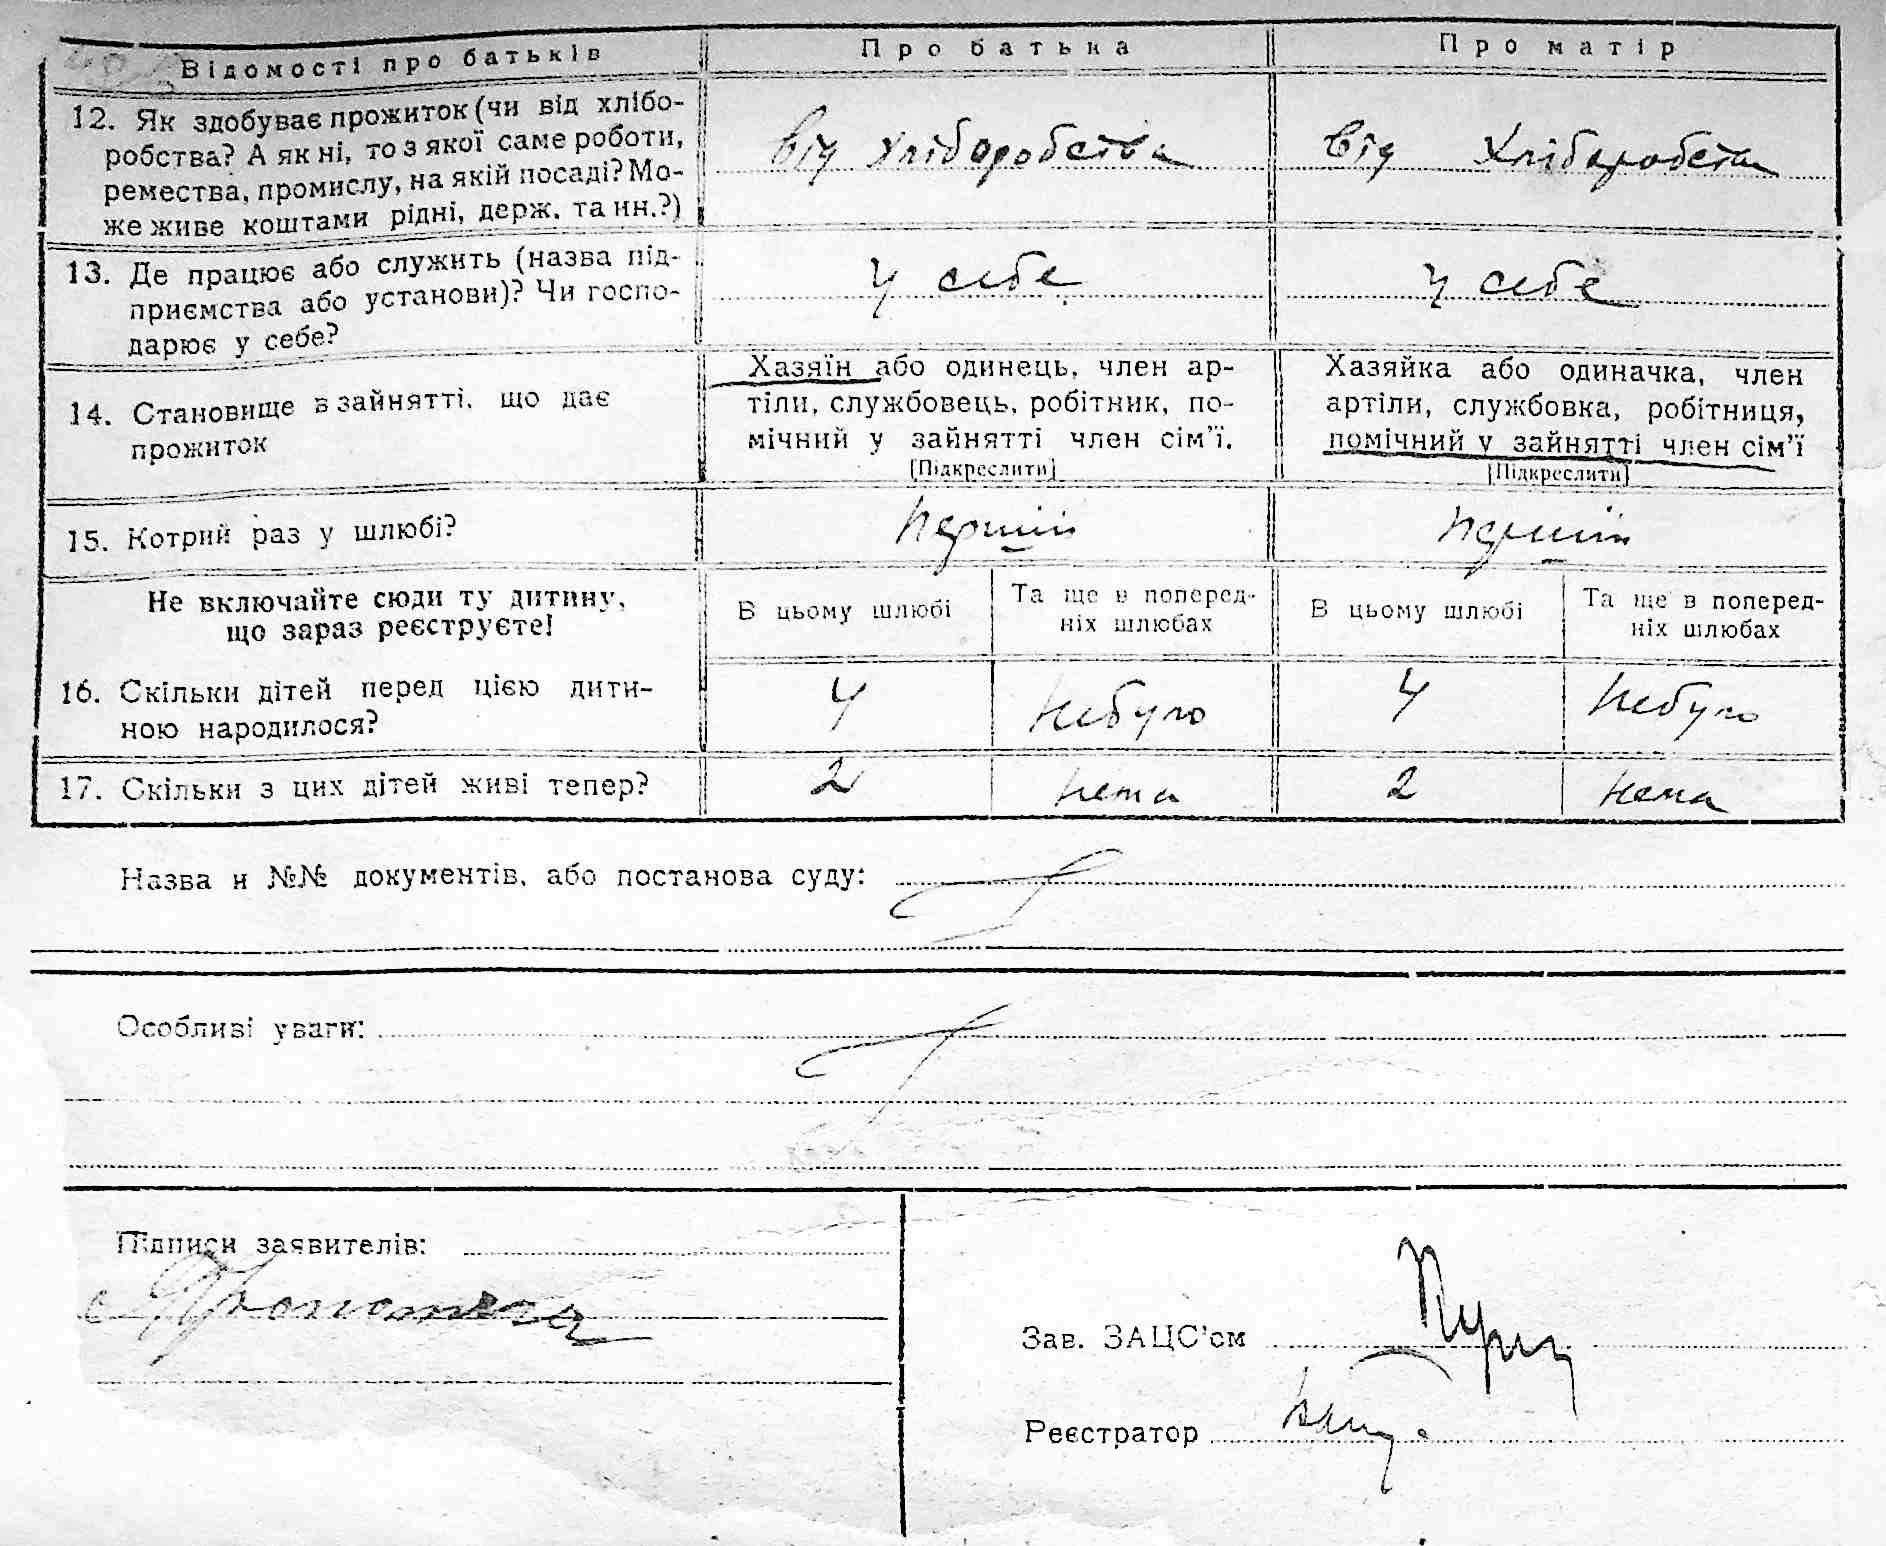 Відомості про батьків Про батька Про матір
12. Як здобуває прожиток (чи від хлібо-
робства? А як ні, то з якої саме роботи,
ремества, промислу, на якій посаді? Мо-
же живе коштами рідні, держ. та ин.?)
Від хліборобства Від хліборобства
13. Де працює або служить (назва під-
приємства або установи)? Чи госпо-
дарює у себе?
у себе у себе
14. Становище в зайнятті, що дає
прожиток
Хазяїн або одинець, член ар-
тіли, службовець, робітник, по-
мічний у зайнятті член сім'ї.
[Підкреслити]
Хазяйка або одиначка, член
артіли, службовка, робітниця,
помічний у зайнятті член сім'ї
[Підкреслити]
15. Котрий раз у шлюбі? перший перший
Не включайте сюди ту дитину,
що зараз реєструєте!
В цьому шлюбі
Та ще в поперед-
ніх шлюбах
В цьому шлюбі
Та ще в поперед-
ніх шлюбах
16. Скільки дітей перед цією дити-
ною народилося?
4 небуло 4 небуло
17. Скільки з цих дітей живі тепер? 2 нема 2 нема
Назва и №№ документів, або постанова суду:
Особливі уваги:
Підписи заявителів:
Зав. ЗАЦС'ом
Реєстратор